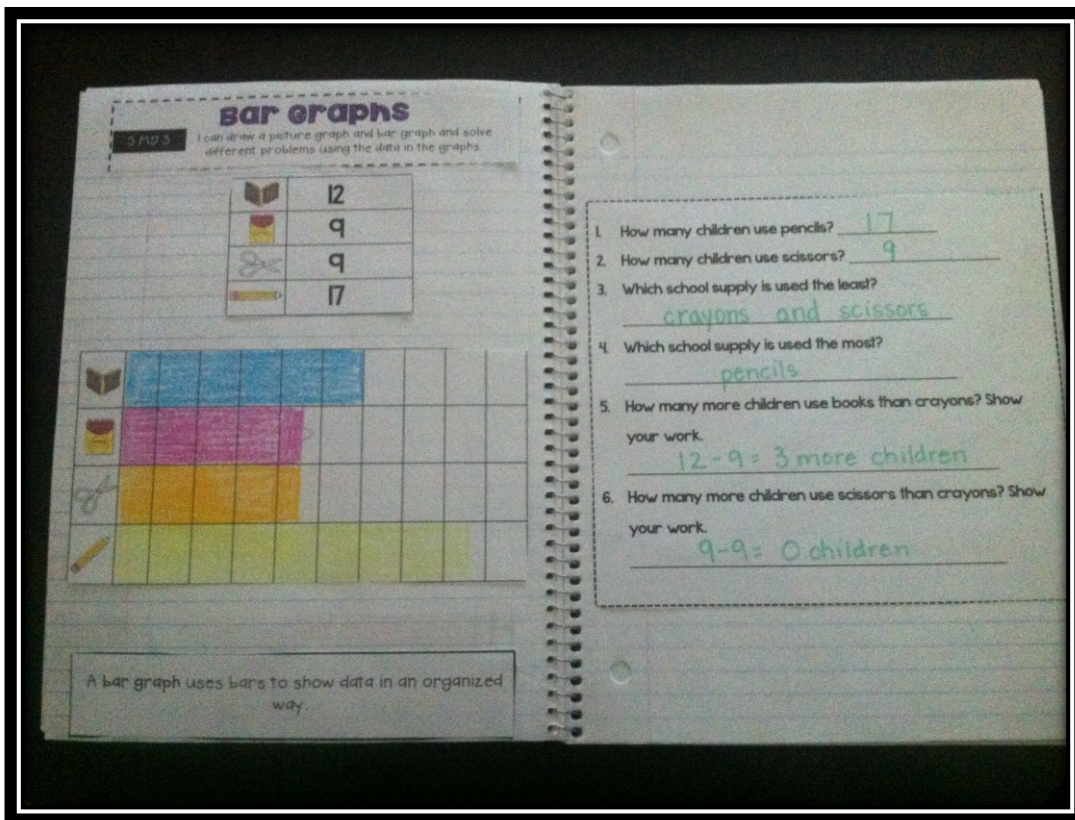 Bar Graphs
3.MD.3
I can draw a picture graph and bar graph and solve
different problems using the data in the graphs.
12
9
9
17
A bar graph uses bars to show data in an organized
way.
1. How many children use pencils? 17
2. How many children use scissors? 9
3. Which school supply is used the least?
crayons and scissors
4. Which school supply is used the most?
pencils
5. How many more children use books than crayons? Show
your work.
12-9= 3 more children
6. How many more children use scissors than crayons? Show
your work.
9-9= 0 children